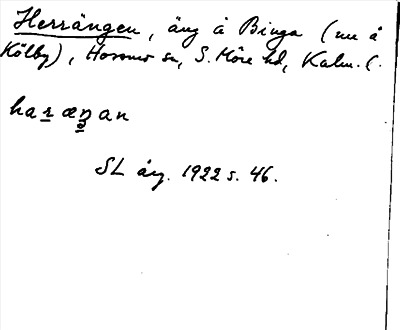 Herrängen, äng å Binga (nu å
Kölby), Hossmo sn, S. Möre hd, Kalm. l.
haræŋan
SL årg. 1922 s. 46.